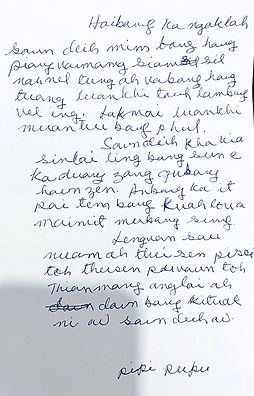 Haibang ka ngaklah
Saun deih mim bang hang
piang vaimang siam sil
nawnel tung ah vabang hang
tuang luankhi tawh lambang
vel ing. Lakmai luankhi
muan tui bang phul.
Saundeih kha kia
sintai ling bang sune
ka duang zang gubang
haen zen. Anbang ka it
pai tem bang kuah loua
mainit mubang sing
Lenguan sau
nuam ah thei sen
toh theisen toh
Thian mang anglai ah
dawn bang kituak
ni aw saun deih aw.
pipi pupu